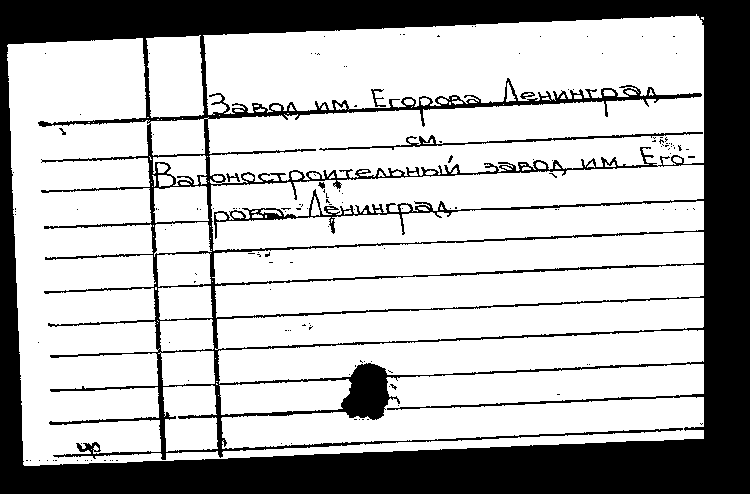 Завод им. Егорова Ленинград
см.
Вагоностроительный завод им. Его-
рова. Ленинград.